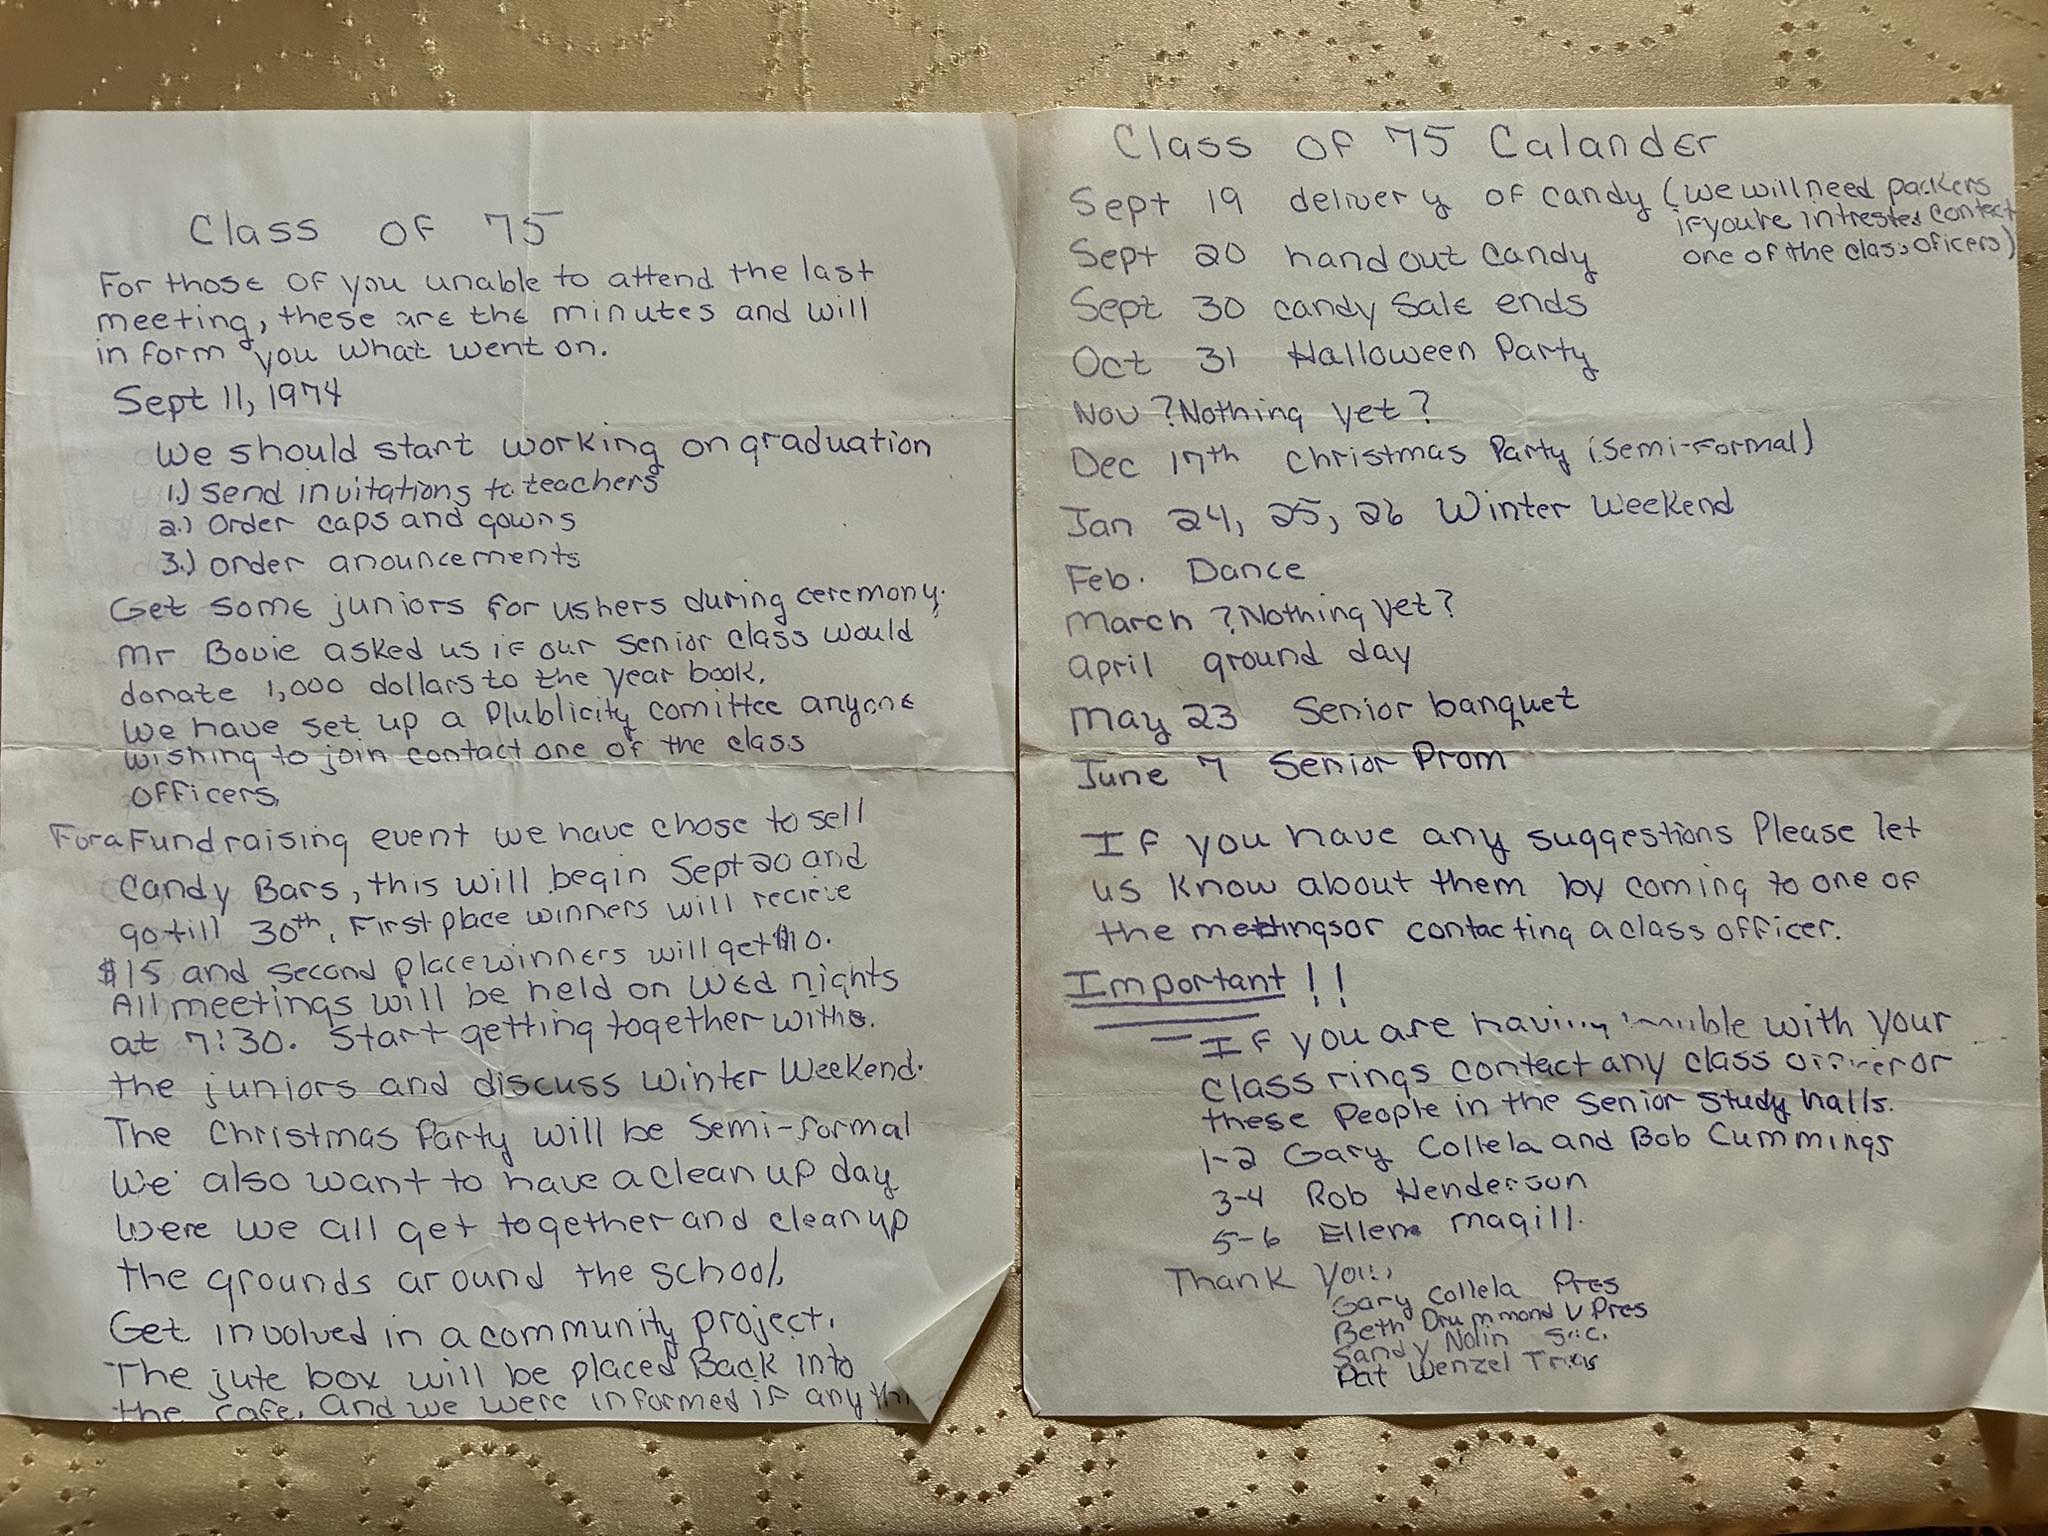 Class of 75
For those of you unable to attend the last
meeting, these are the minutes and will
in form you what went on.
Sept 11, 1974
We should start working on graduation
1.) send invitations to teachers
2.) order caps and gowns
3.) order anouncements
Get some juniors for ushers during ceremony.
Mr Bovie asked us if our senior class would
donate 1,000 dollars to the year book.
We have set up a Plublicity comittee anyone
wishing to join contact one of the class
officers.
For a Fund raising event we have chose to sell
Candy Bars, this will begin Sept 20 and
go till 30th. First place winners will recieve
$15 and second place winners will get $10.
All meetings will be held on Wed nights
at 7:30. Start getting together with
the juniors and discuss Winter Weekend.
The Christmas Party will be Semi-formal
We also want to have a clean up day
Were we all get together and clean up
the grounds around the school.
Get involved in a community project.
The jute box will be placed Back into
the cafe. And we were informed if any
Class of 75 Calander
Sept 19 delivery of candy (we will need packers
if you're intrested contact
one of the class oficers)
Sept 20 hand out candy
Sept 30 candy sale ends
Oct 31 Halloween Party
Nov ? Nothing yet ?
Dec 17th Christmas Party (Semi-Formal)
Jan 24, 25, 26 Winter Weekend
Feb. Dance
March ? Nothing yet ?
April ground day
May 23 Senior banquet
June 7 Senior Prom
If you have any suggestions Please let
us know about them by coming to one of
the meetings or contacting a class officer.
Important!!
If you are having with your
class rings contact any class officer or
these People in the senior study halls.
1-2 Gary Collela and Bob Cummings
3-4 Rob Henderson
5-6 Ellen Magill.
Thank You,
Gary Collela Pres
Beth Drummond V Pres
Sandy Nolin Sec.
Pat Wenzel Treas